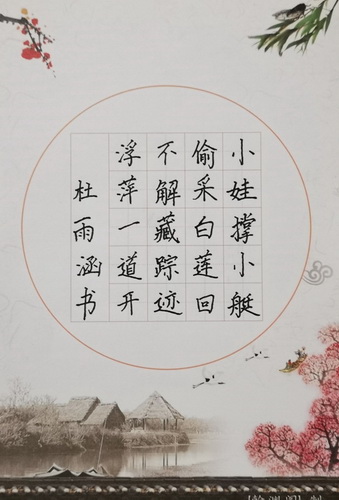 小娃撑小艇
偷采白莲回
不解藏踪迹
浮萍一道开
杜雨涵书